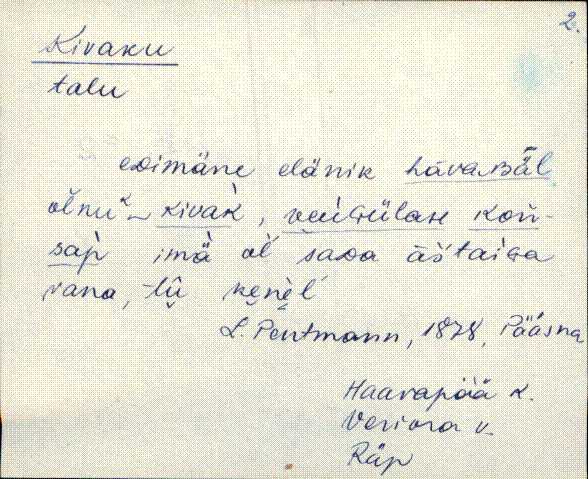 2.
Kivaku
talu
esimäne elänik hāvaBäl
olnu kivak̀, veiGülan kon-
sap̀ imä ol̆ saDa āštaiGa
vana,
L. Pentmann, 1878, Pääsna
Haavapää k.
Veriora v.
Räp